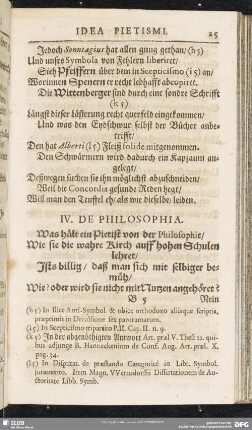 IDEA PIETISMI. 25
Jedoch Sonntagius hat allen gnug gethan/ (h 5)
Und unsre Symbola von Fehlern liberiret/
Sieh Pfeiffern über dem in Scepticismo (i 5) an/
Worinnen Spenern er recht lebhafft abcopiret.
Die Wittenberger sind durch eine sondre Schrifft
(k 5)
Längst dieser Lästerung recht querfeld eingekommen/
Und was den Eydschwur selbst der Bücher anbe-
trifft/
Den hat Alberti (l 5) Fleiß solide mitgenommen.
Den Schwärmern wird dadurch ein Kapzaum an-
geleget/
Deßwegen suchen sie ihn möglichst abzuschneiden/
Weil die Concordia gesunde Reden hegt/
Will man den Teuffel eh/ als wie dieselbe leiden.
IV. DE PHILOSOPHIA.
Was hält ein Pietist von der Philosophie/
Wie sie die wahre Kirch auff hohen Schulen
lehret/
Ists billig/ daß man sich mit selbiger be-
müh/
Wie/ oder wird sie nicht mit Nutzen angehöret?
B 5 Nein
(h 5) In Ilice Anti-Symbol. & obice orthodoxo aliisque scriptis,
præprimis in Divulsione sex paroramatum.
(i 5) In Scepticismo tripartito P.II. Cap. II. n. 9.
(k 5) In der abgenöthigten Antwort Art. præl. V. Thes. 12. qui-
bus adjunge B. Hannekenium de Conf. Aug. Art. præl. X.
pag. 34.
(l 5) In Disputat. de præstando Categoricè in Libr. Symbol.
juramento. Item Magn. Wernsdorffii Dissertationem de Au-
ctoritate Libb. Symb.